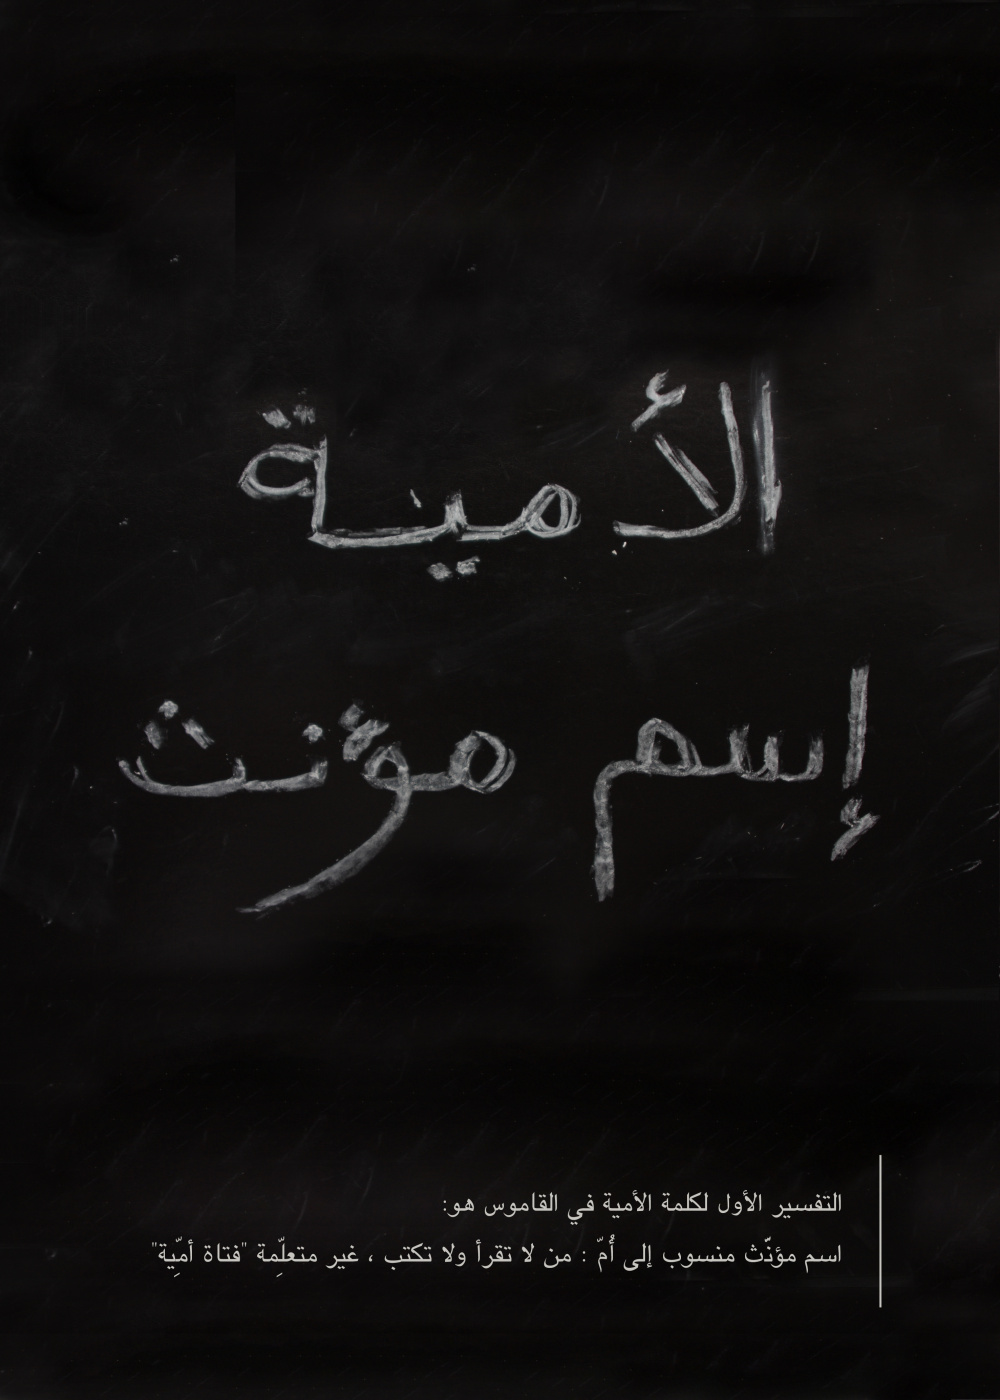 الأمية
إسم مؤنث
التفسير الأول لكلمة الأمية في القاموس هو:
اسم مؤنّث منسوب إلى أُمّ : من لا تقرأ ولا تكتب ، غير متعلِّمة "فتاة أمِّية"